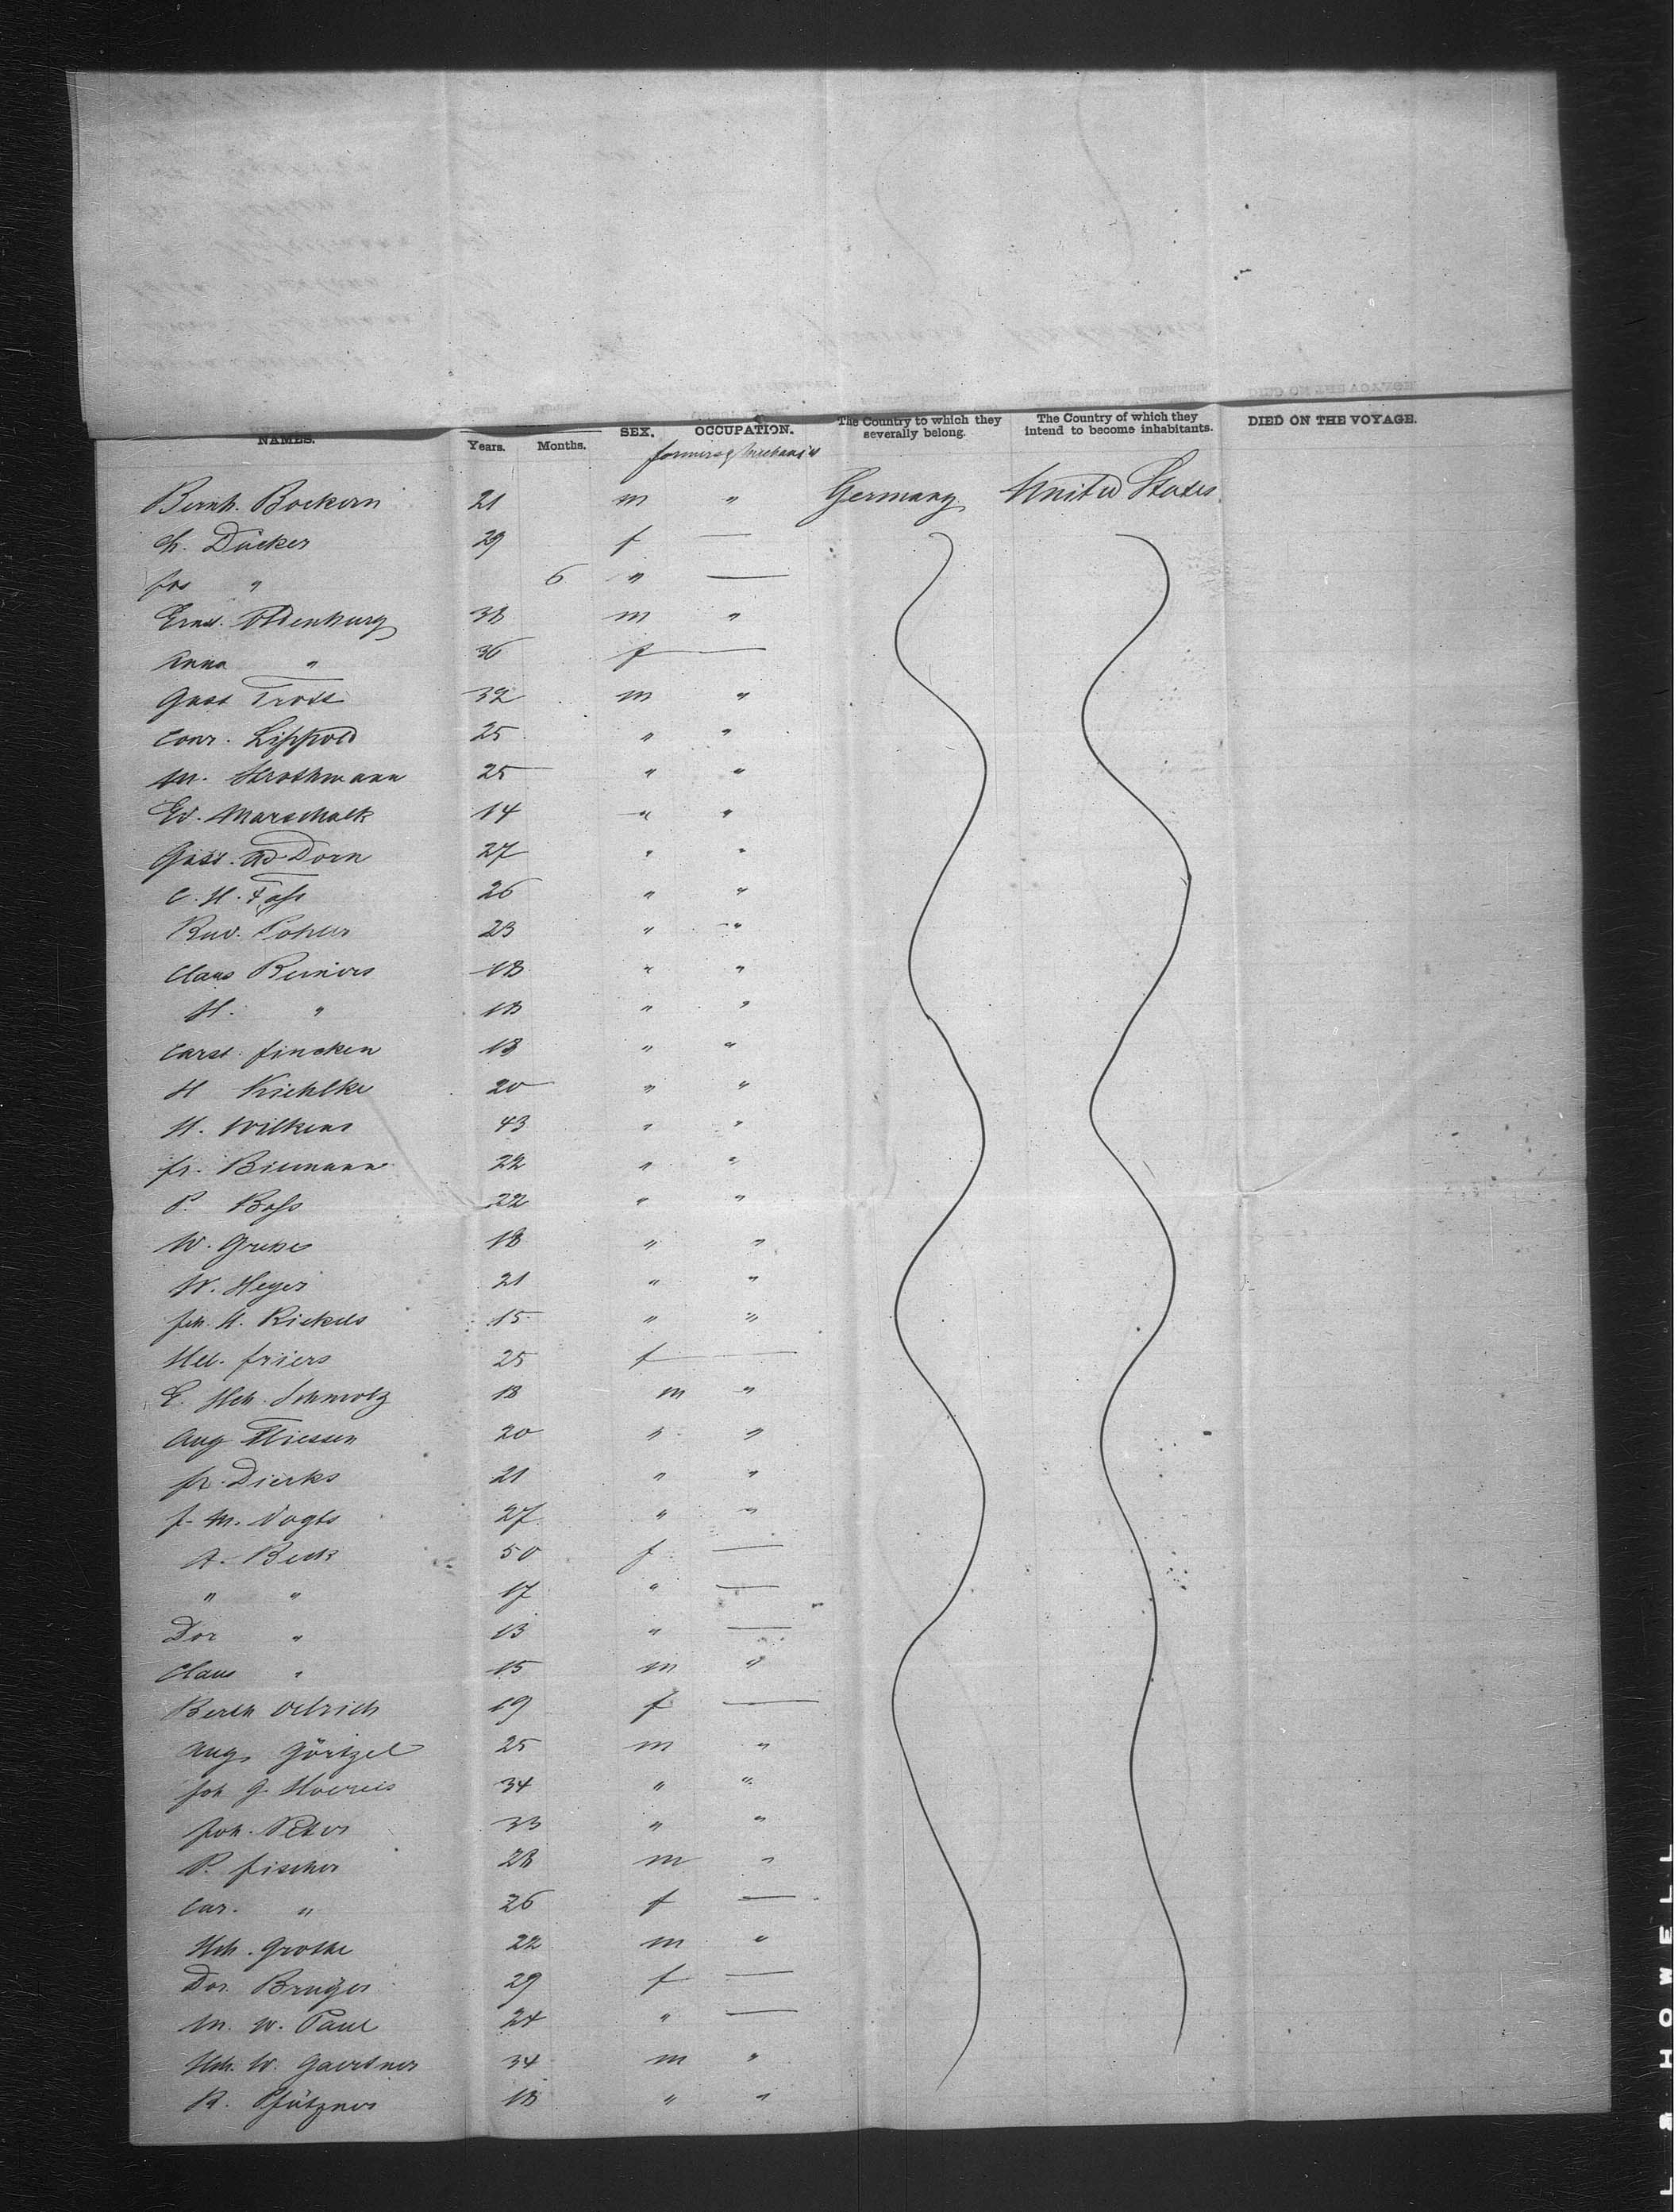 NAMES. Years. Months. SEX. OCCUPATION. The Country to which they severally belong. The Country of which they intend to become inhabitants. DIED ON THE VOYAGE.
farmers & Mechanics
Bernh. Bockern 21 m " Germany United States
Ch. Dücker 29 f —
Jos " 6 " —
Ernst. Oldenburg 38 m "
Anna " 36 f —
Gust Trott 32 m "
Conr. Lippold 25 " "
M. Strothmann 25 " "
Ed. Marschalk 14 " "
Gust. Ad Dorn 27 " "
C. H. Fass 26 " "
Rud. Pohler 23 " "
Claus Reiners 18 " "
H. " 18 " "
Carst. Fincken 18 " "
H Kiehlke 20 " "
H. Wilkens 43 " "
Fr. Biemann 22 " "
P. Boss 22 " "
W. 18 " "
W. Heyer 21 " "
Joh. H. Rickels 15 " "
Hel. Friers 25 f —
E. Hch. Schmolz 18 m "
Aug Thiessen 20 " "
Fr. Dierks 21 " "
J. M. Vogts 27 " "
A. Beck 50 f —
" " 17 " —
Dor " 13 " —
Claus " 15 m "
Berth Oelrich 19 f —
Aug. Görtzel 25 m "
Joh G. 34 " "
Joh. Peter 33 " "
P. Fischer 28 m "
Car. " 26 f —
Hch. Grothe 22 m "
Dor. Brüger 29 f —
M. W. Paul 24 " —
Hch. W. Gaertner 34 m "
R. Pfützner 18 " "
L & HOWELL